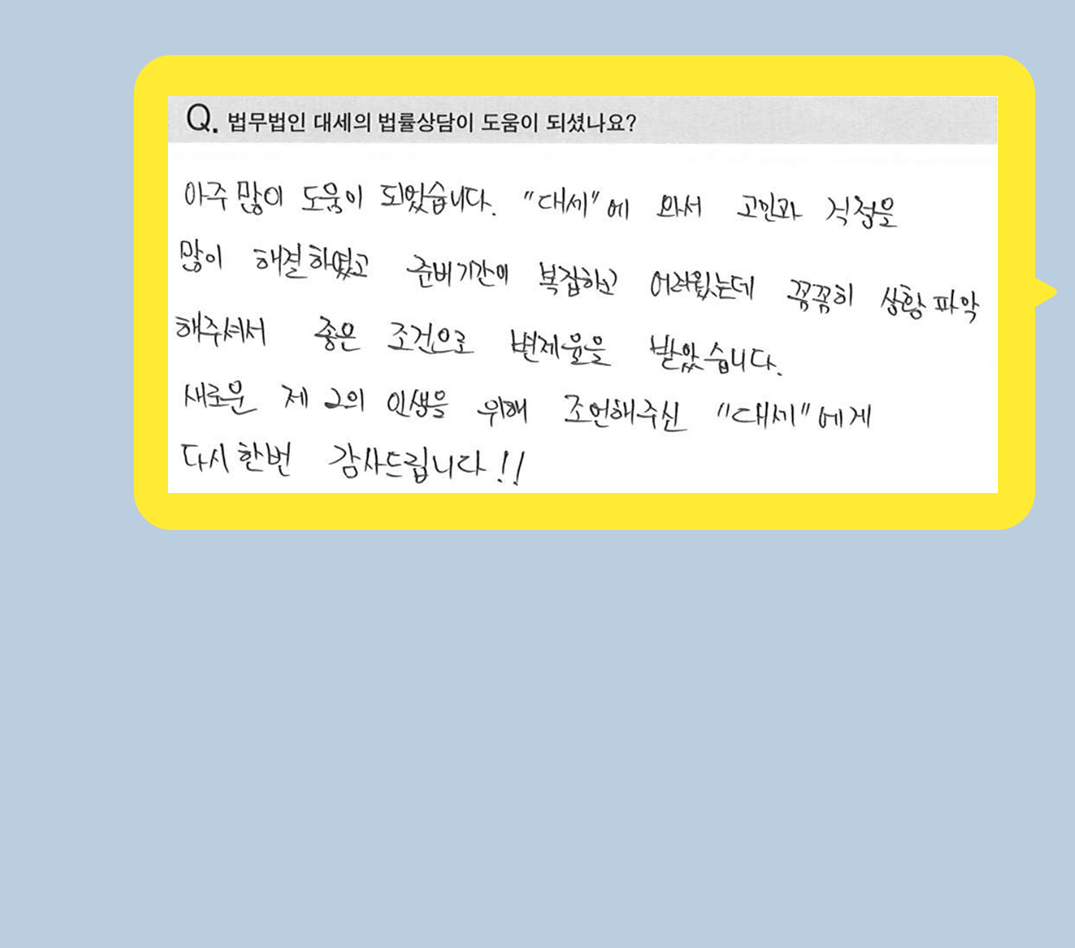 Q. 법무법인 대세의 법률상담이 도움이 되셨나요?
아주 많이 도움이 되었습니다. "대세"에 와서 고민과 걱정을
많이 해결하였고 준비기간이 복잡하고 어려웠는데 꼼꼼히 상황파악
해주셔서 좋은 조건으로 변제율을 받았습니다.
새로운 제 2의 인생을 위해 조언해주신 "대세"에게
다시한번 감사드립니다!!